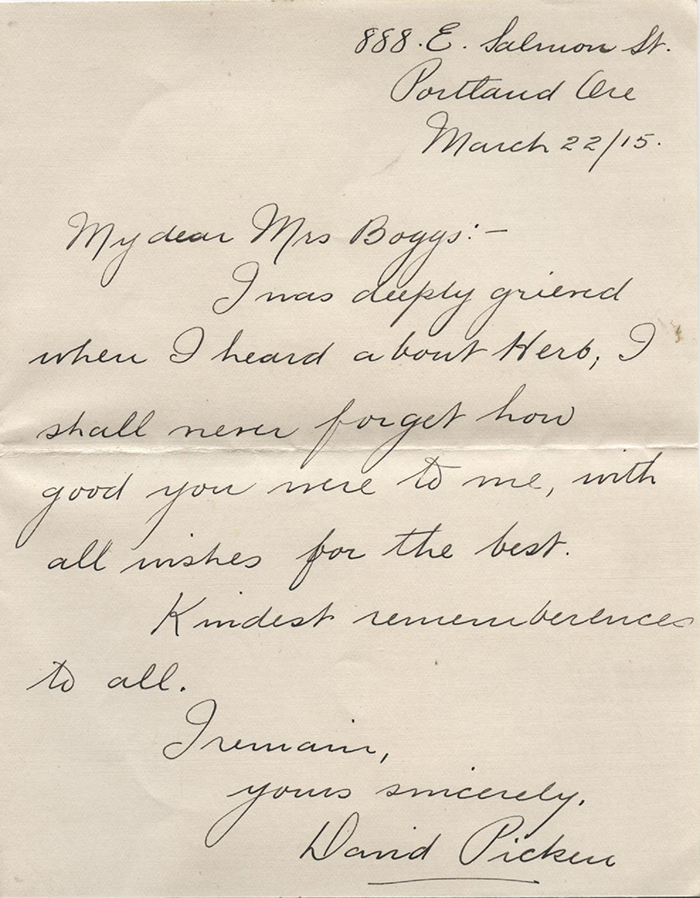 888. E. Salmon St.
Portland Ore
March 22/15.
My dear Mrs Boggs:-
I was deeply grieved
when I heard about Herb, I
shall never forget how
good you were to me, with
all wishes for the best.
Kindest rememberences
to all.
I remain,
yours sincerely.
David Picken